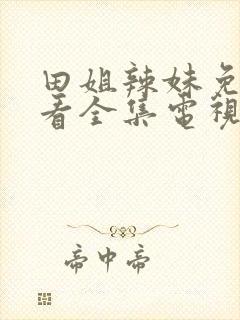 田姐辣妹免
看全集電視
帝中帝